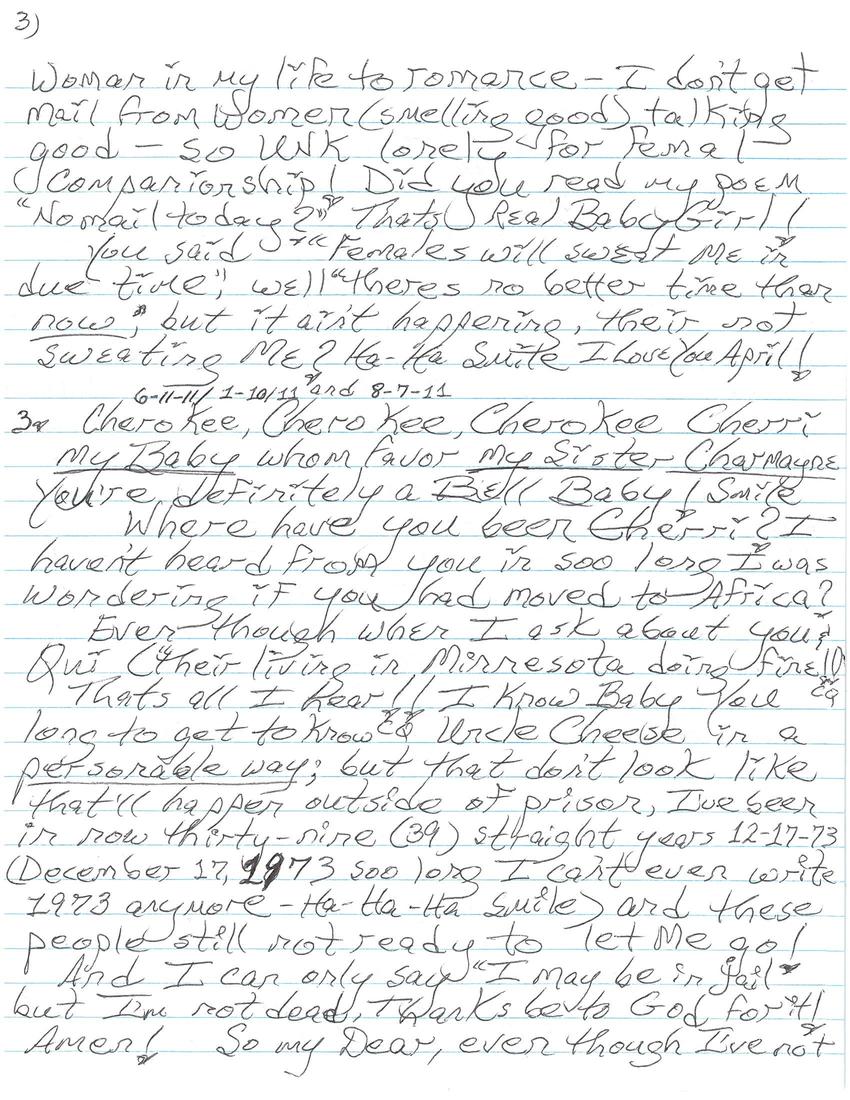 3)
Woman in my life to romance - I don't get
mail from Women (smelling good) talking
good - so UNK lonely for femal
Companionship! Did you read my poem
"No mail today?" Thats Real Baby Girl!!
You said "Females will sweat ME in
due time", well "theres no better time than
now", but it ain't happening, their not
Sweating ME? Ha-Ha Smile I Love You April!
6-11-11/ 1-10/11 and 8-7-11
3. Cherokee, Cherokee, Cherokee Cherri
my Baby whom favor my Sister Charmayne
You're definitely a Bell Baby! Smile
Where have you been Cherri? I
haven't heard from you in soo long I was
wondering if you had moved to Africa?
Even though when I ask about you &
Qui ("their living in Minnesota doing fine!!")
Thats all I hear!! I Know Baby You
long to get to know Uncle Cheese in a
personable way; but that don't look like
that'll happen outside of prison, I've been
in now thirty-nine (39) straight years 12-17-73
(December 17, 1973 soo long I can't even write
1973 anymore - Ha-Ha-Ha Smile) and these
people still not ready to let Me go!
And I can only say "I may be in jail"
but I'm not dead, Thanks be to God for it!
Amen! So my Dear, even though I've not